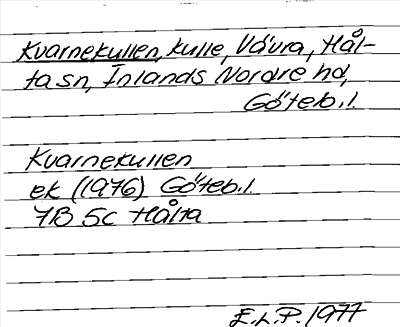 Kvarnekullen, kulle, Vävra, Hål-
ta sn, Inlands Nordre hd,
Göteb.l.
Kvarnekullen
ek (1976) Göteb.l.
7B 5c Hålta
E.L.P. 1977